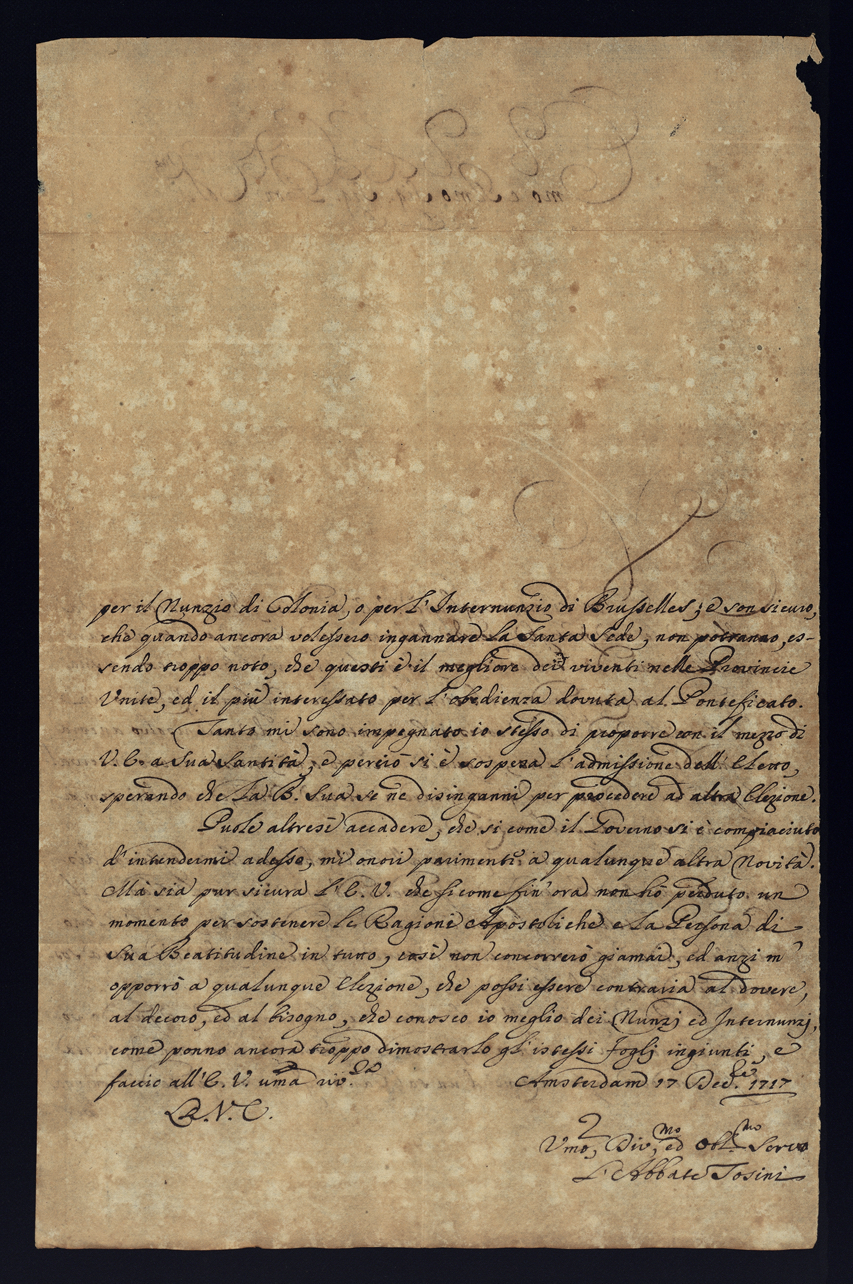 per il Nunzio di Colonia, o per l'Internunzio di Brusselles; e son sicuro,
che quando ancora volessero ingannare la Santa Sede, non potranno, es-
sendo troppo noto, che questi è il megliore dei viventi nelle Provincie
Unite, ed il più interessato per l'obedienza dovuta al Ponteficato.
Tanto mi sono impegnato io stesso di proporre con il mezzo di
V. E. a Sua Santità; e perciò si è sospeza l'admissione dell'Eletto,
sperando che la B. Sua se ne disinganni per procedere ad altra Elezione.
Puole altresì accadere, che si come il Governo si è compiaciuto
d'intendermi adesso, mi onori parimenti a qualunque altra Novità.
Mà sia pur sicura l'E. V. che sicome fin'ora non hò perduto un
momento per sostenere le Ragioni Apostoliche e la Persona di
Sua Beatitudine in tutto, così non concorrerò giamai, ed anzi m'
opporrò a qualunque Elezione, che possi essere contraria al dovere,
al decoro, ed al bisogno, che conosco io meglio dei Nunzj ed Internunzj,
come ponno ancora troppo dimostrarlo gl'istessi Foglj ingiunti, e
faccio all'E. V. uma riv.
Amsterdam 17 Dec.bre 1717
D. V. E.
Vmo, Div.mo, ed Obl.mo Servo
L'Abbate Tosini